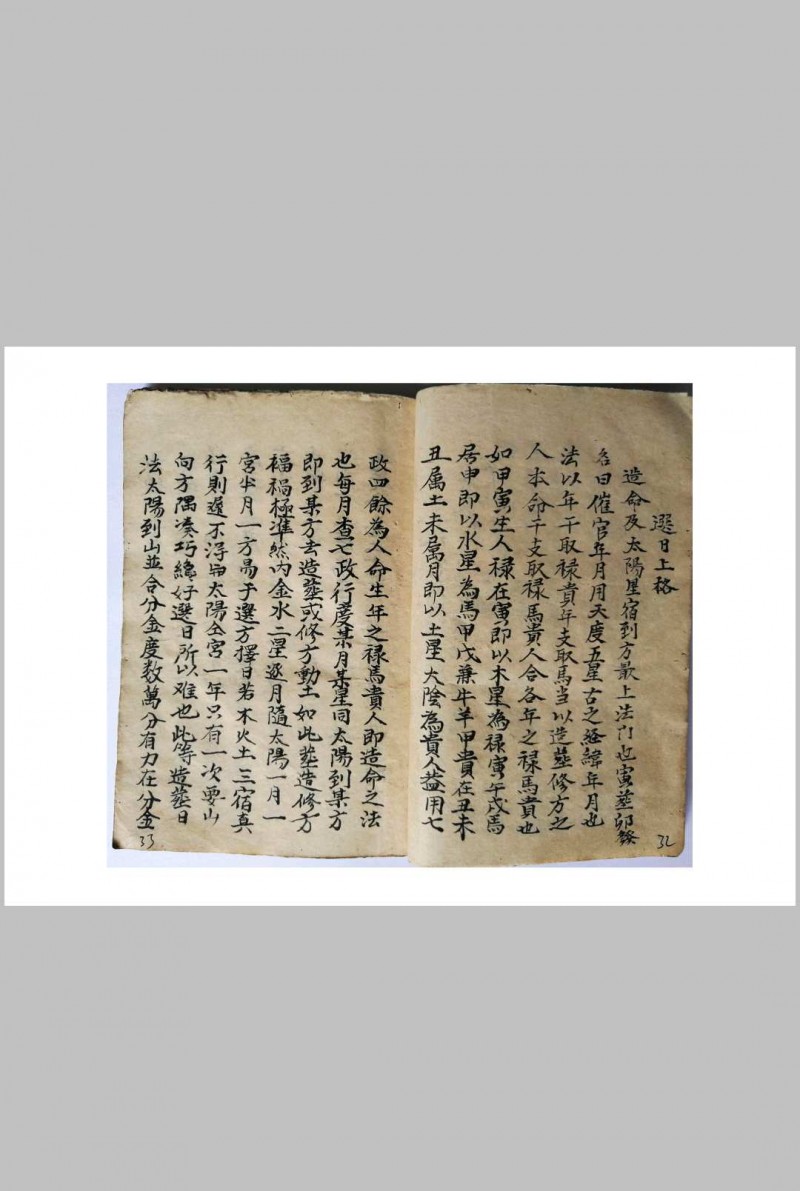 選日上格
造命及太陽星宿到方最上法门也寅塟卯發
名曰催官年月用天度五星古之経緯年月也
法以年干取禄貴年支取馬当以造塟修方之
人本命干支取禄馬貴人合各年之禄馬貴也
如甲寅生人禄在寅即以木星為禄寅午戌馬
居申即以水星為馬甲戊兼牛羊甲貴在丑未
丑属土未属月即以土星太陰為貴人盖用七
32
政四餘為人命生年之禄馬貴人即造命之法
也每月查七政行度某月某星同太陽到某方
即到某方去造塟或修方動土如此塟造修方
福禍極準然内金水二星逐月隨太陽一月一
宮半月一方昜于選方擇日若木火土三宿真
行則遲不得与太陽仝宮一年只有一次要山
向方隅凑巧纔好選日所以难也此等造塟日
法太陽到山並合分金度数萬分有力在分金
33